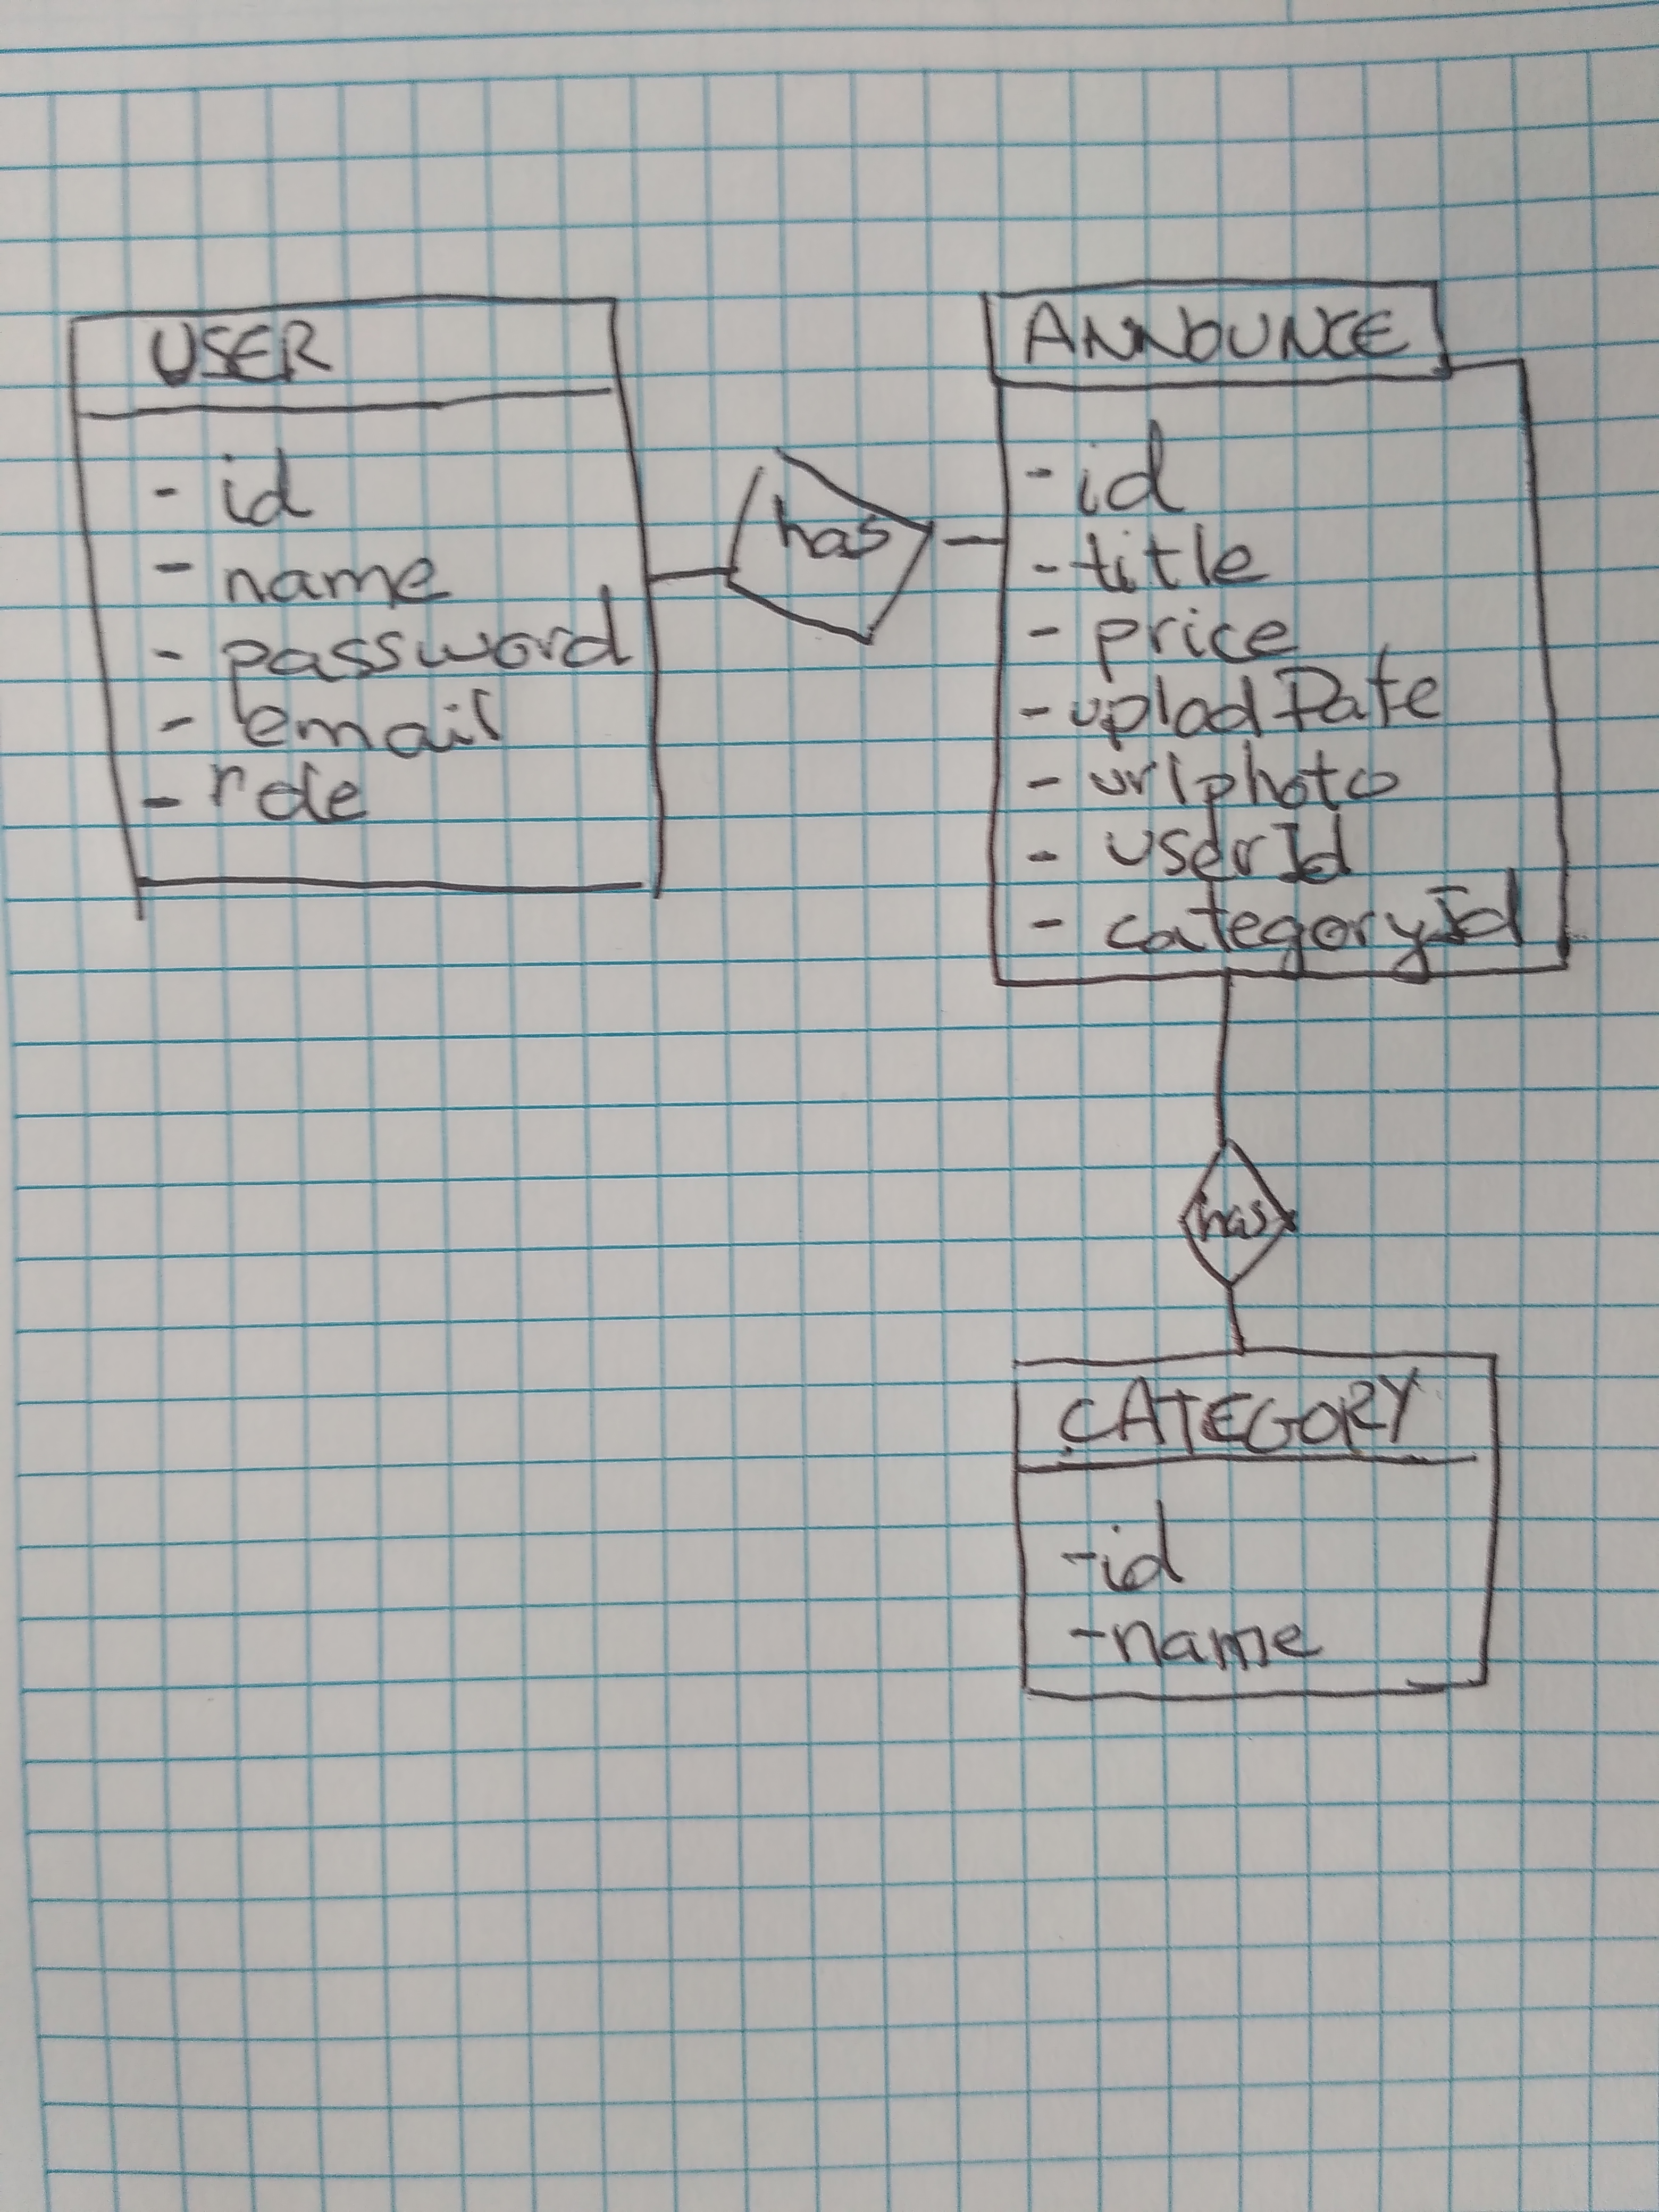 USER
- id
- name
- password
- email
- role
has
ANNOUNCE
- id
- title
- price
- uplodDate
- urlphoto
- userId
- categoryId
has
CATEGORY
- id
- name